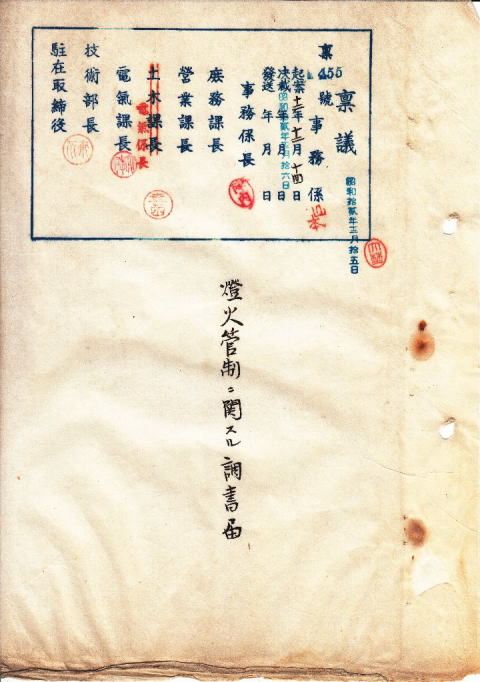 稟議
稟
455
號
事務係
起案十二年十二月十四日
決裁 年 月 日
昭和拾貳年 月拾六日
發送 年 月 日
事務係長
庶務課長
營業課長
土木課長
電氣係長
電氣課長
技術部長
駐在取締役
昭和拾貳年十二月拾五日
燈火管制ニ関スル調書届